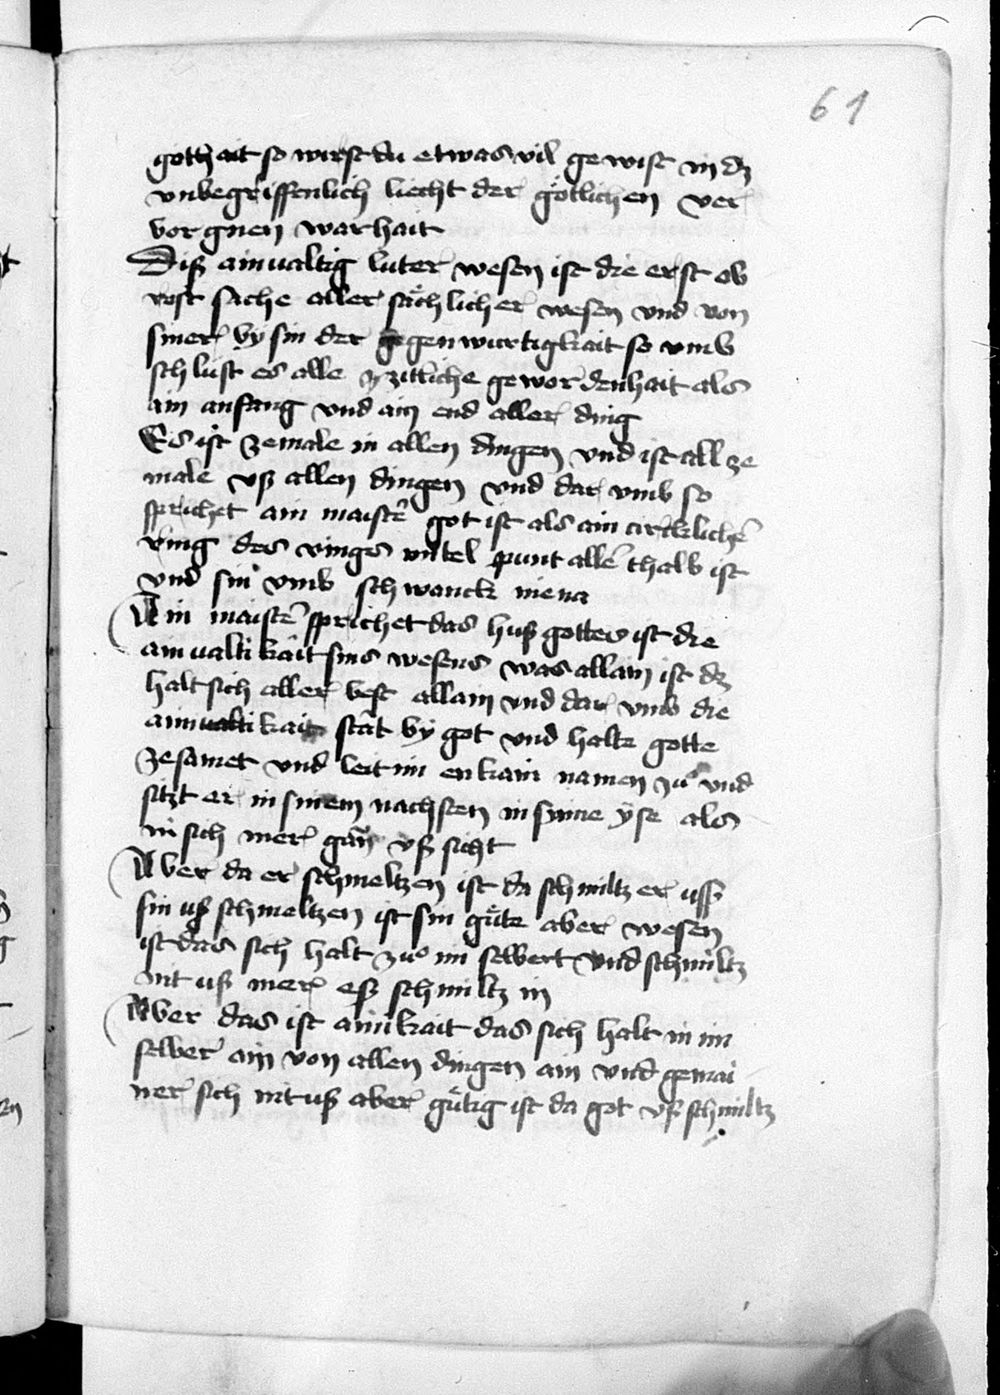 61
gotthait so wirst du etwas vil gewist in dz
vnbegriffenlich liecht der götlichen ver
borgnen warhait
Diß ainualtig luter wesen ist die erst ob
rost sache aller sächlicher wesen vnd von
siner by sin der gegenwürtigkait so vmb
schlust es alle zitliche gewordenhait als
ain anfang vnd ain end aller ding
Es ist zemale in allen dingen vnd ist all ze
male vß allen dingen vnd dar vmb so
sprichet ain maister̄ got ist als ain cirklicher̄
ring des ringes mitel punt allē thalb ist
vnd sin vmb schwanck niena
Ain maister̄ sprichet das huß gottes ist die
ainualtikait sins wesens was allain ist dz
halt sich aller best allain vnd dar vmb die
ainualtikait stät by got vnd halt gotte
zesamet vnd leit im enkain namen zuͦ vnd
sitzt er in sinem nachsten in sinne yse als
in sich mer gan vß sicht
Aber da er schmeltzen ist da schmiltz er uss
sin uß schmeltzen ist sin gůte aber wesen
ist das sich halt zuͦ im selbert vnd schmiltz
nit uß mer eß schmiltz in
Aber das ist ainikait das sich halt in im
selber ain von allen dingen ain vnd gemai
ner sich nit uß aber gůtig ist da got vß schmiltz